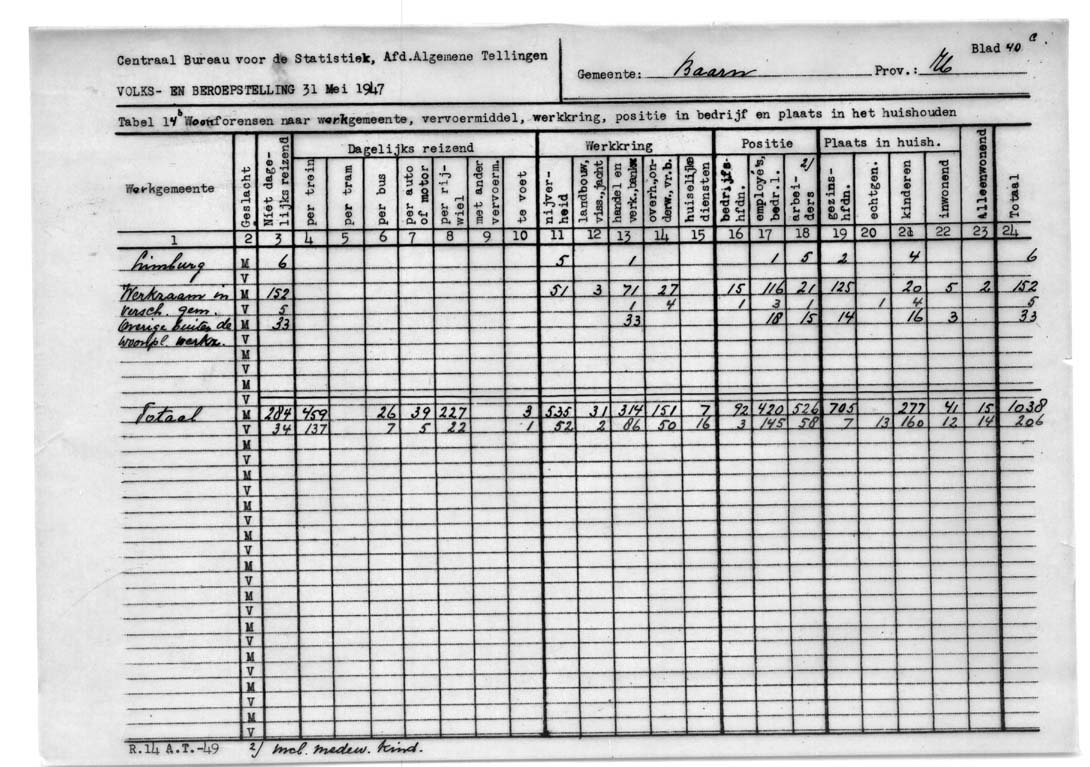 Blad 40 c
Centraal Bureau voor de Statistiek, Afd.Algemene Tellingen
Gemeente: Baarn Prov.: U
VOLKS- EN BEROEPSTELLING 31 Mei 1947
Tabel 14b Woonforensen naar werkgemeente, vervoermiddel, werkkring, positie in bedrijf en plaats in het huishouden
Werkgemeente Geslacht Niet dagelijks reizend Dagelijks reizend Werkkring Positie Plaats in huish. Alleenwonend Totaal
per trein per tram per bus per auto of motor per rijwiel met ander vervoerm. te voet
nijverheid landbouw, viss.,jacht handel en verk.,bankw overh.,onderw.,vr.b. huiselijke diensten
bedrijfshfdn. employé's, bedr.l. arbeiders 2/
gezinshfdn. echtgen. kinderen inwonend
1 2 3 4 5 6 7 8 9 10 11 12 13 14 15 16 17 18 19 20 21 22 23 24
Limburg M 6 5 1 1 5 2 4 6
V
Werkraam in M 152 51 3 71 27 15 116 21 125 20 5 2 152
versch. gem. V 5 1 4 1 3 1 1 4 5
Overige buiten de M 33 33 18 15 14 16 3 33
woonpl. werkz. V
M
V
M
V
Totaal M 284 459 26 39 227 3 535 31 314 151 7 92 420 526 705 277 41 15 1038
V 34 137 7 5 22 1 52 2 86 50 16 3 145 58 7 13 160 12 14 206
M
V
M
V
M
V
M
V
M
V
M
V
M
V
M
V
M
V
M
V
R.14 A.T.-49 2/ incl. medew. kind.